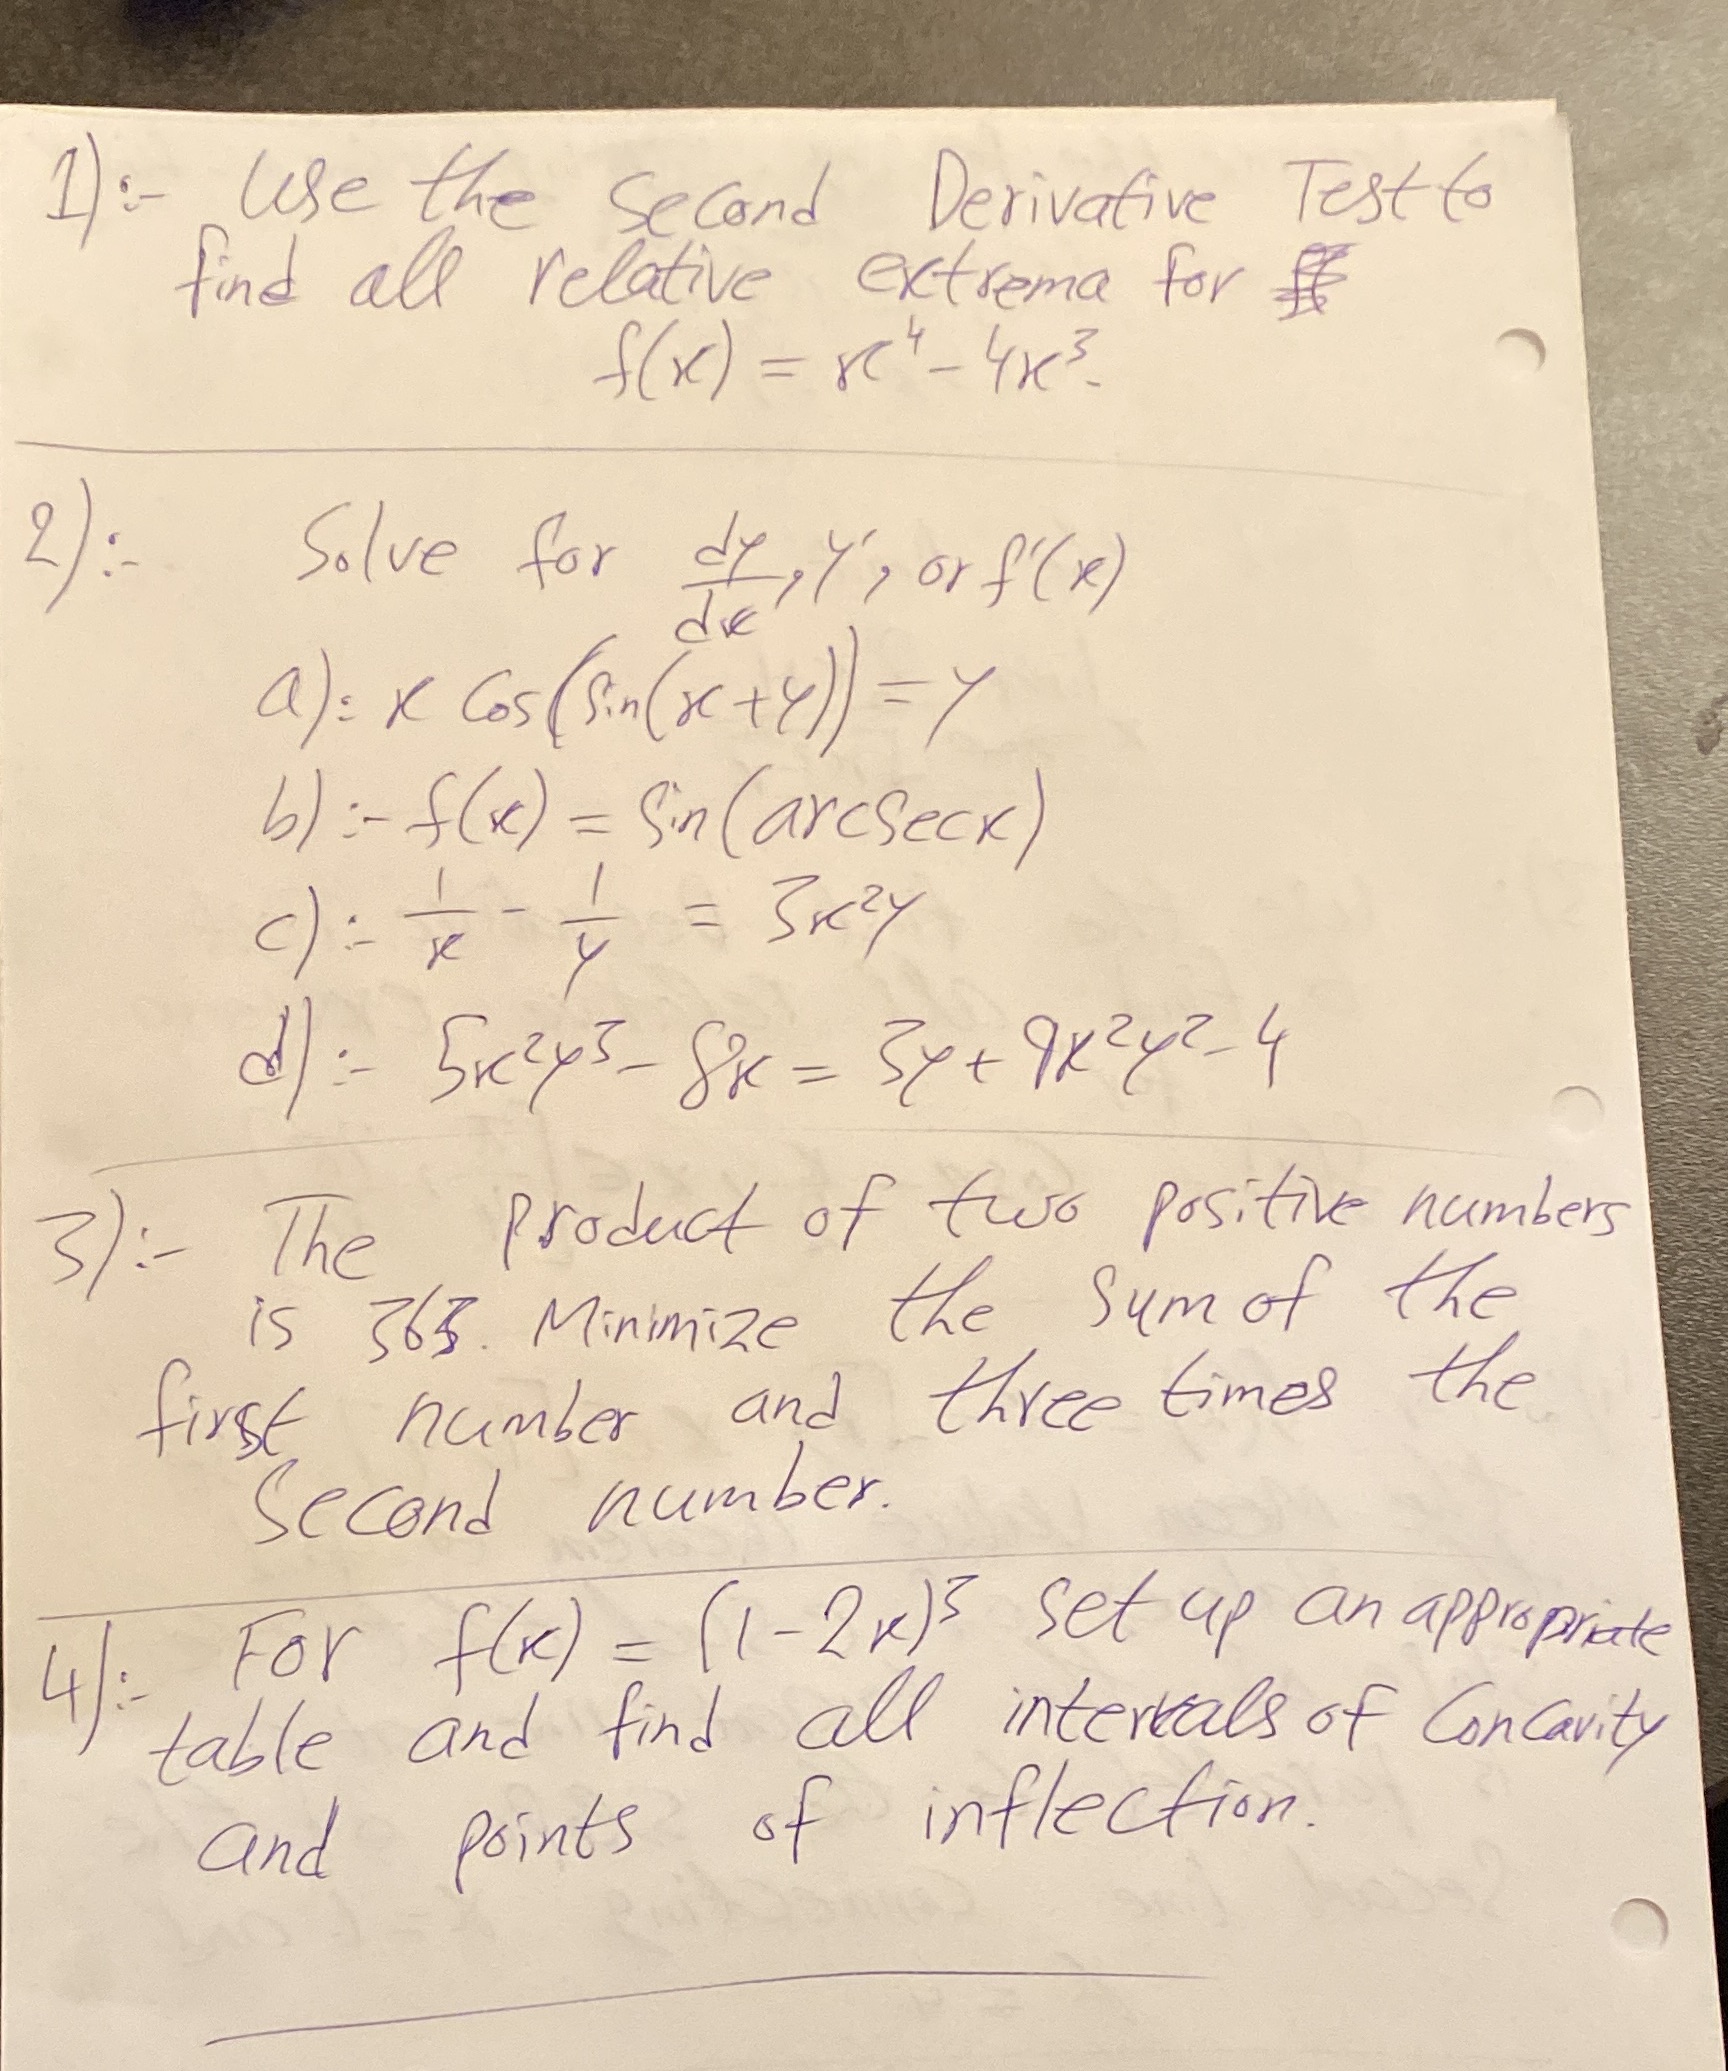 1):- Use the Second Derivative Test to
find all relative extrema for
f(x) = x⁴ - 4x³.
2):- Solve for dy/dx, y', or f'(x)
a):- x cos(sin(x+y)) = y
b):- f(x) = sin(arcsecx)
c):- 1/x - 1/y = 3x²y
d):- 5x²y³ - 8x = 3y + 9x²y² - 4
3):- The product of two positive numbers
is 363. Minimize the sum of the
first number and three times the
second number.
4):- For f(x) = (1-2x)³ set up an appropriate
table and find all intervals of Concavity
and points of inflection.